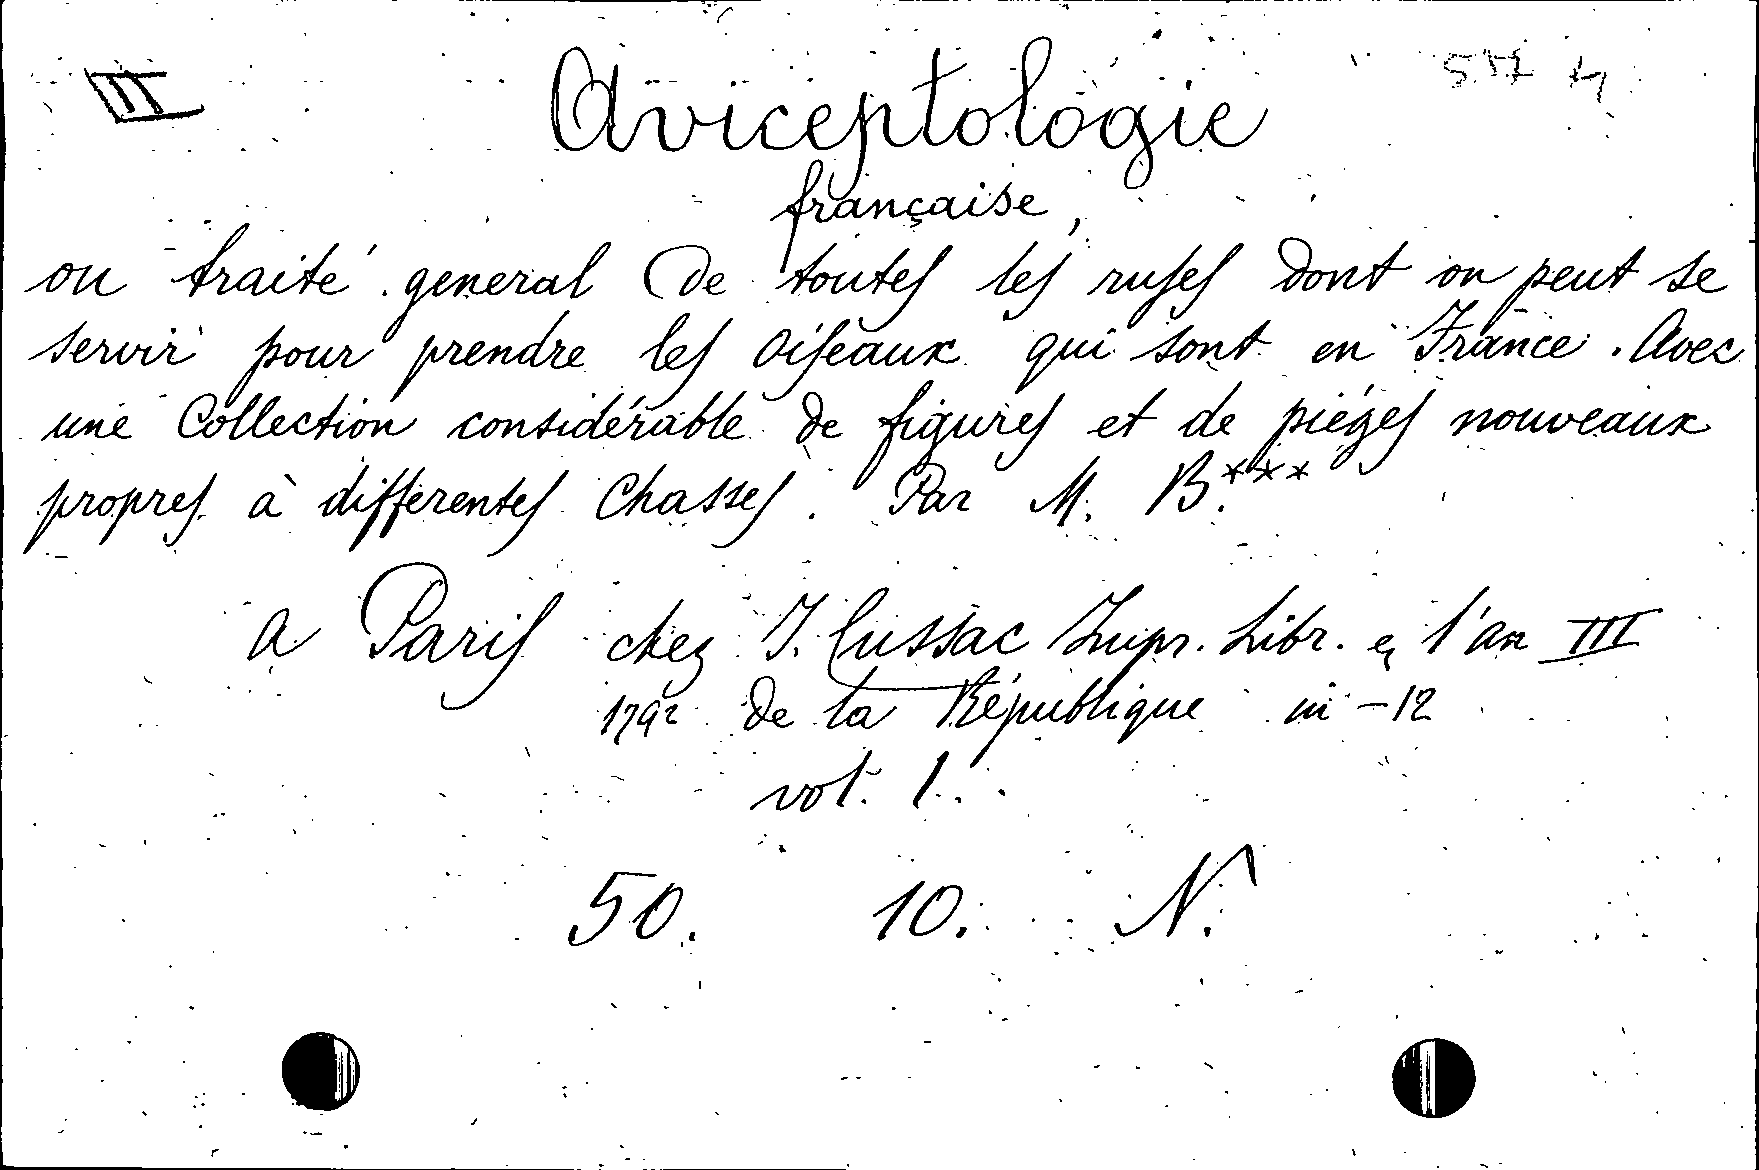 II
Aviceptologie
française,
ou traité general de toutes les ruses dont on peut se
servir pour prendre les oiseaux qui sont en France. Avec
une Collection considérable de figures et de piéges nouveaux
propres à differentes Chasses. Par M. B.***
a Paris chez J. Cussac Impr. Libr. l'an III
1792 de la République in-12
vol. 1.
50. 10. N.